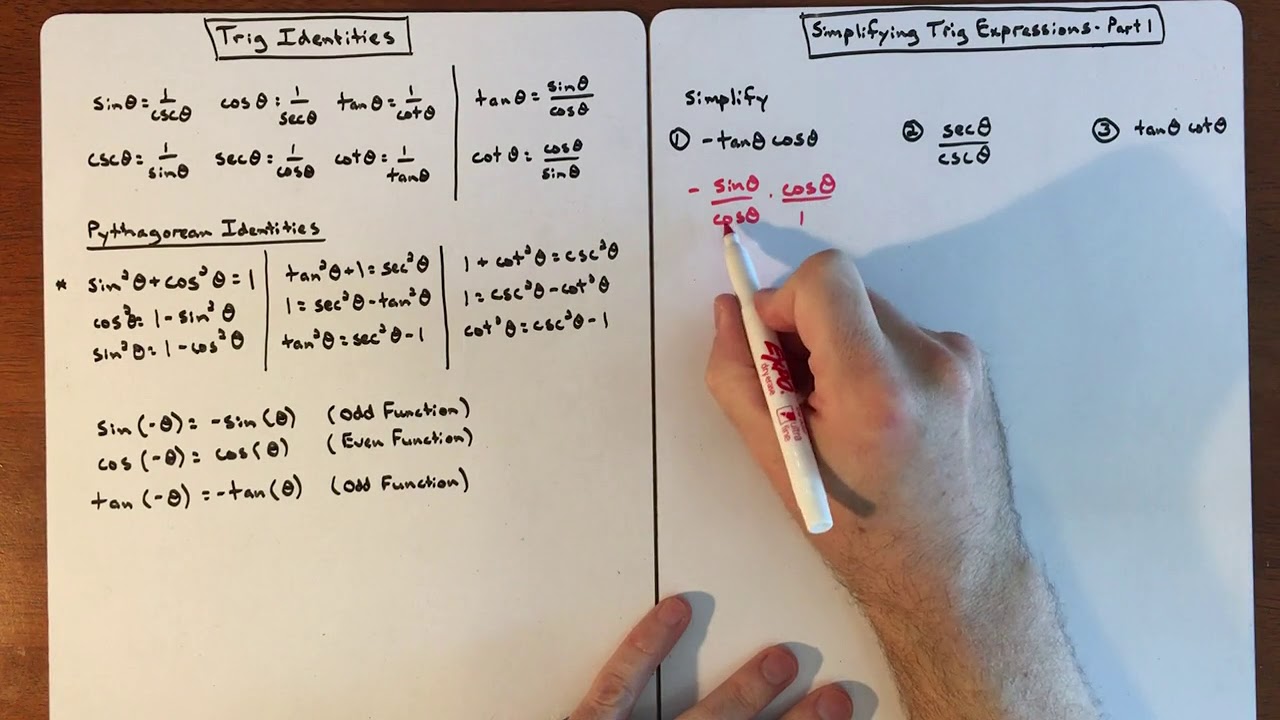 Trig Identities
sinθ = 1/cscθ cosθ = 1/secθ tanθ = 1/cotθ tanθ = sinθ/cosθ
cscθ = 1/sinθ secθ = 1/cosθ cotθ = 1/tanθ cotθ = cosθ/sinθ
Pythagorean Identities
* sin²θ + cos²θ = 1
cos²θ = 1 - sin²θ
sin²θ = 1 - cos²θ
tan²θ + 1 = sec²θ
1 = sec²θ - tan²θ
tan²θ = sec²θ - 1
1 + cot²θ = csc²θ
1 = csc²θ - cot²θ
cot²θ = csc²θ - 1
sin(-θ) = -sin(θ) (Odd Function)
cos(-θ) = cos(θ) (Even Function)
tan(-θ) = -tan(θ) (Odd Function)
Simplifying Trig Expressions - Part 1
Simplify
① -tanθ cosθ ② secθ/cscθ ③ tanθ cotθ
- sinθ/cosθ · cosθ/1
EXPO
dry erase
ultra
fine